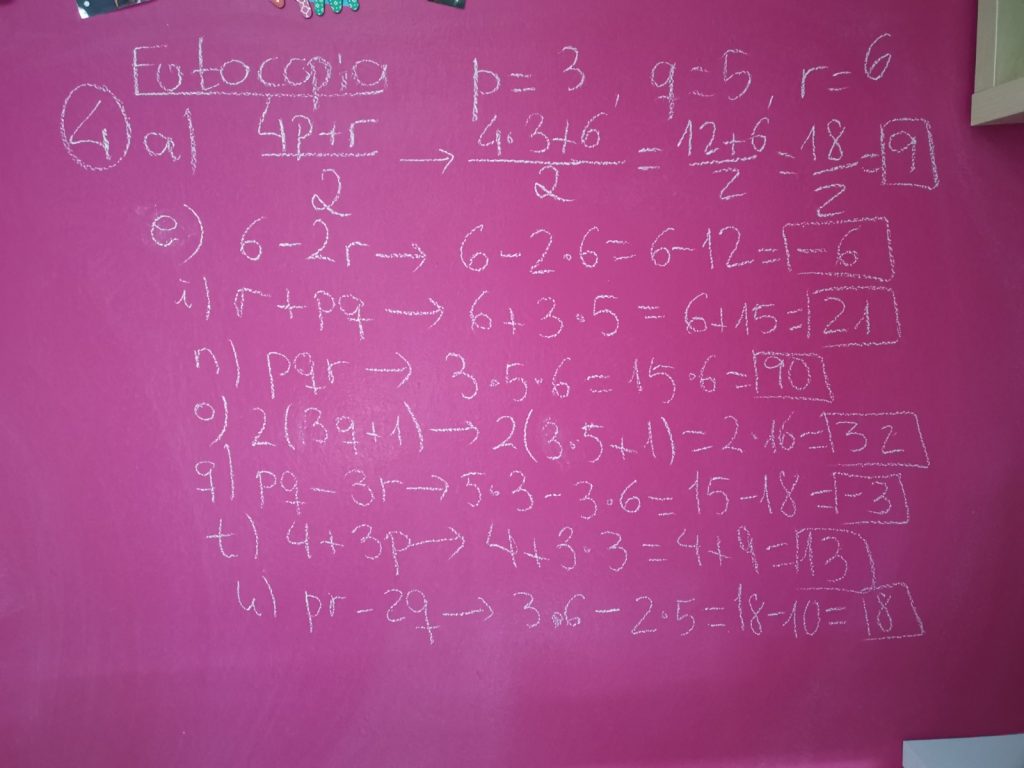 Fotocopia p = 3, q = 5, r = 6
④ a) (4p+r)/2 → (4·3+6)/2 = (12+6)/2 = 18/2 = 9
e) 6 - 2r → 6 - 2·6 = 6 - 12 = -6
i) r + pq → 6 + 3·5 = 6+15 = 21
n) pqr → 3·5·6 = 15·6 = 90
o) 2(3q+1) → 2(3·5+1) = 2·16 = 32
q) pq - 3r → 5·3 - 3·6 = 15 - 18 = -3
t) 4+3p → 4+3·3 = 4+9 = 13
u) pr - 2q → 3·6 - 2·5 = 18 - 10 = 8